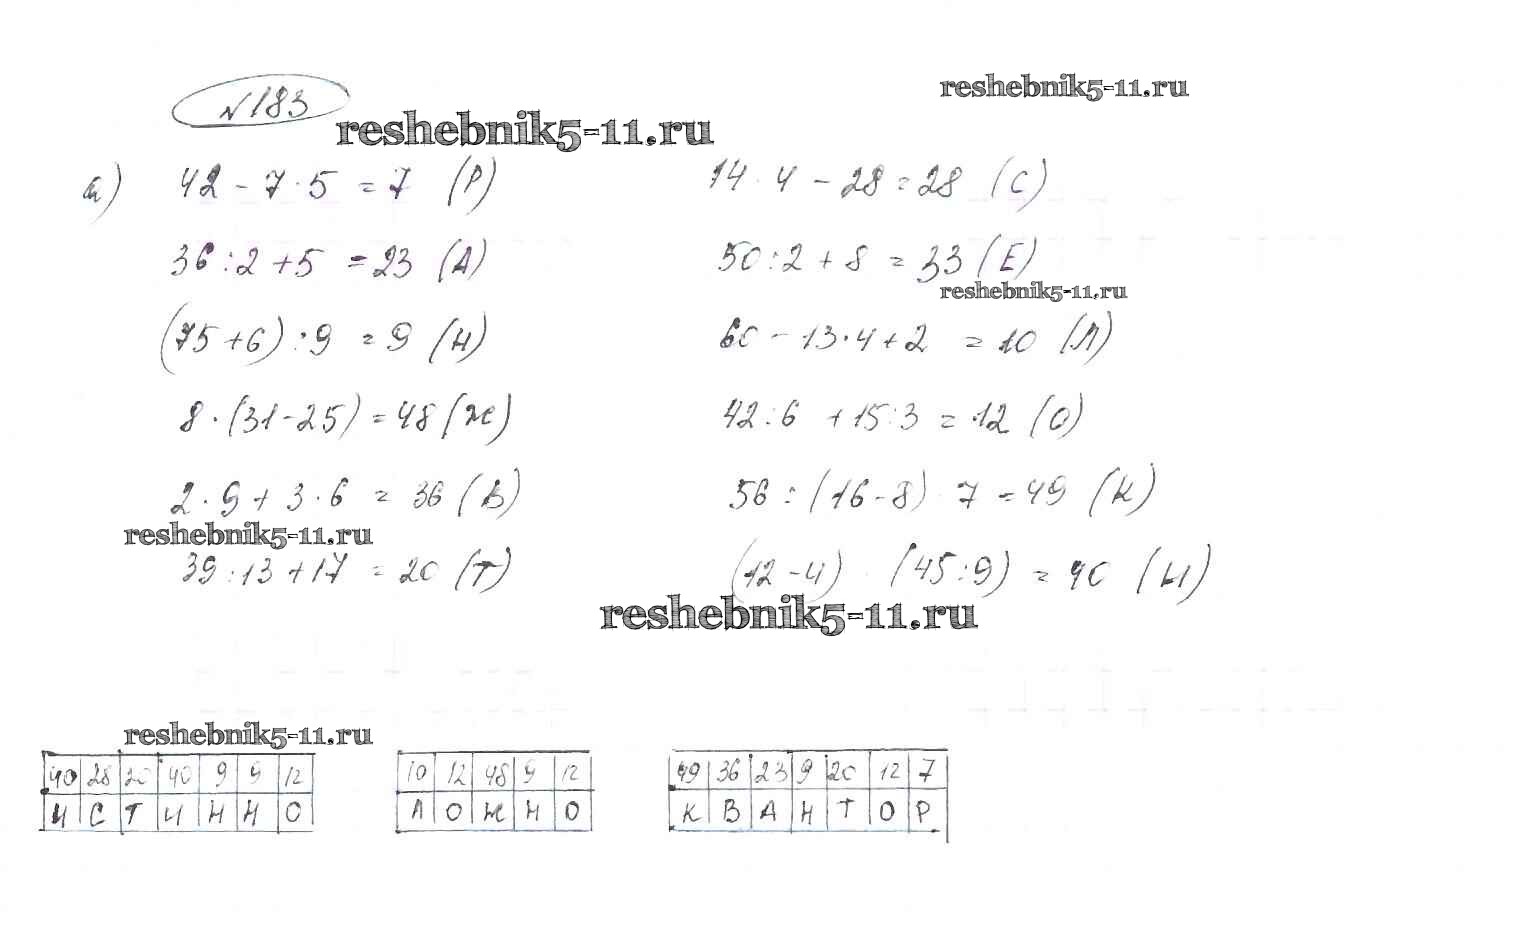 №183
reshebnik5-11.ru
reshebnik5-11.ru
а) 42 - 7·5 = 7 (Р)
14·4 - 28 = 28 (С)
36:2+5 = 23 (А)
50:2+8 = 33 (Е)
reshebnik5-11.ru
(75+6):9 = 9 (Н)
60 - 13·4+2 = 10 (Л)
8·(31-25) = 48 (Ж)
42:6 + 15:3 = 12 (О)
2·9+3·6 = 36 (В)
56:(16-8)·7 = 49 (К)
reshebnik5-11.ru
39:13+17 = 20 (Т)
(12-4)·(45:9) = 40 (И)
reshebnik5-11.ru
reshebnik5-11.ru
40 28 20 40 9 9 12
И С Т И Н Н О
10 12 48 9 12
Л О Ж Н О
49 36 23 9 20 12 7
К В А Н Т О Р